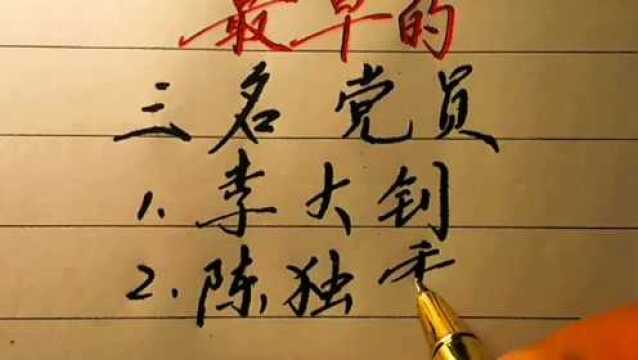 最早的
三名党员
1.李大钊
2.陈独